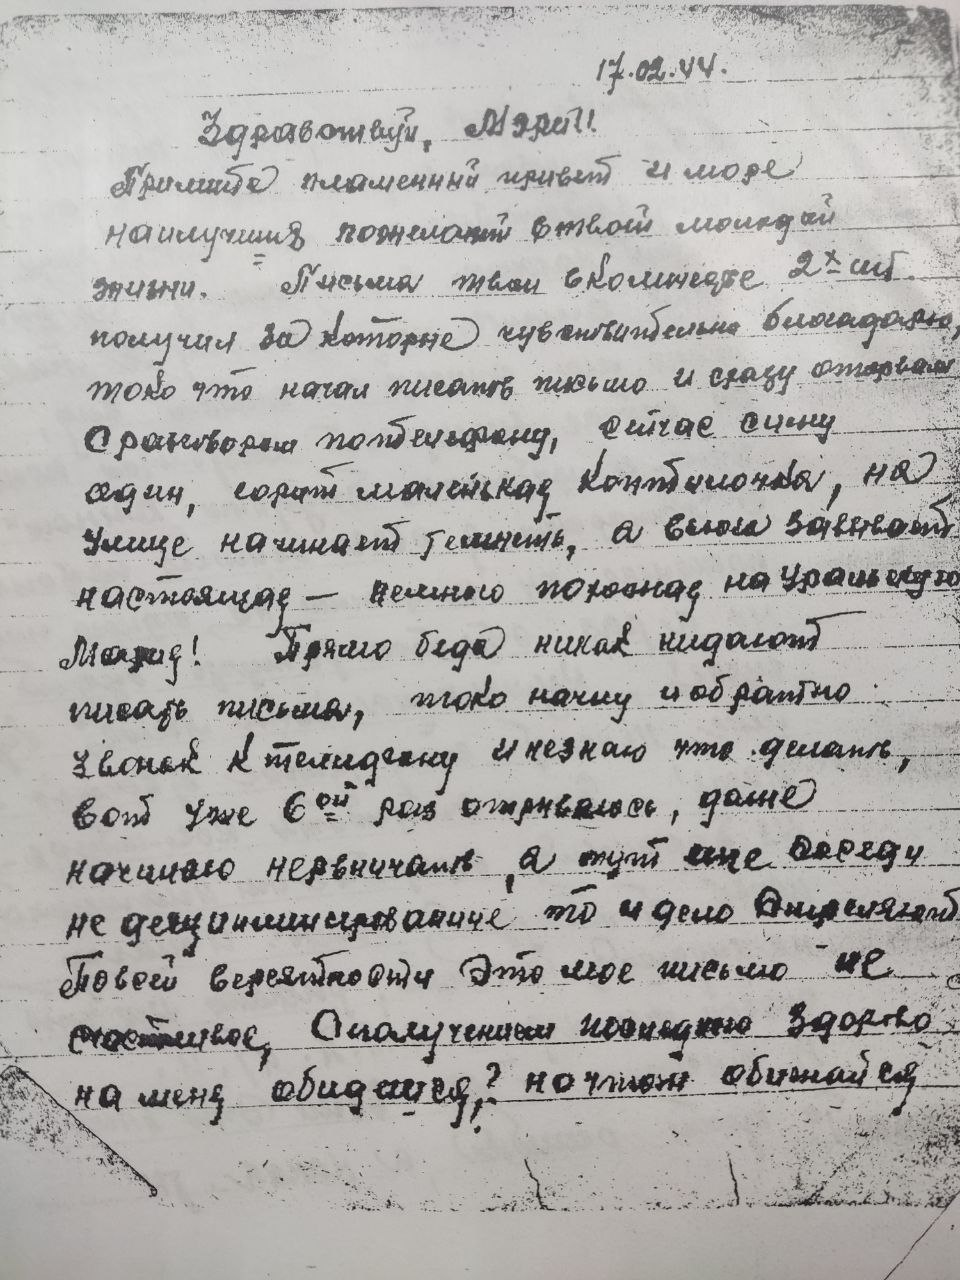 17.02.44.
Здравствуй, Мэри!!
Примите пламенный привет и море
наилучших пожеланий в твоей молодой
жизни. Письма твои в количестве 2х шт.
получил за которые чувствительно благодарю,
токо что начал писать письмо и сразу оторвали
с разговором по телефону, сейчас сижу
один, горит маленькая коптилочка, на
улице начинает темнеть, а вьюга завивает
настоящая — немного похожая на Уральскую
Мария! Прямо беда никак недают
писать письма, токо начну и обратно
звонок к телефону и незнаю что делать,
вот уже 6ой раз отрываюсь, даже
начинаю нервничать, а тут еще соседи
не дисциплинированные то и дело
Повсей вероятности это мое письмо не
счастливое, С получением последнего здорово
на меня обидишся,? но что ж обижайся